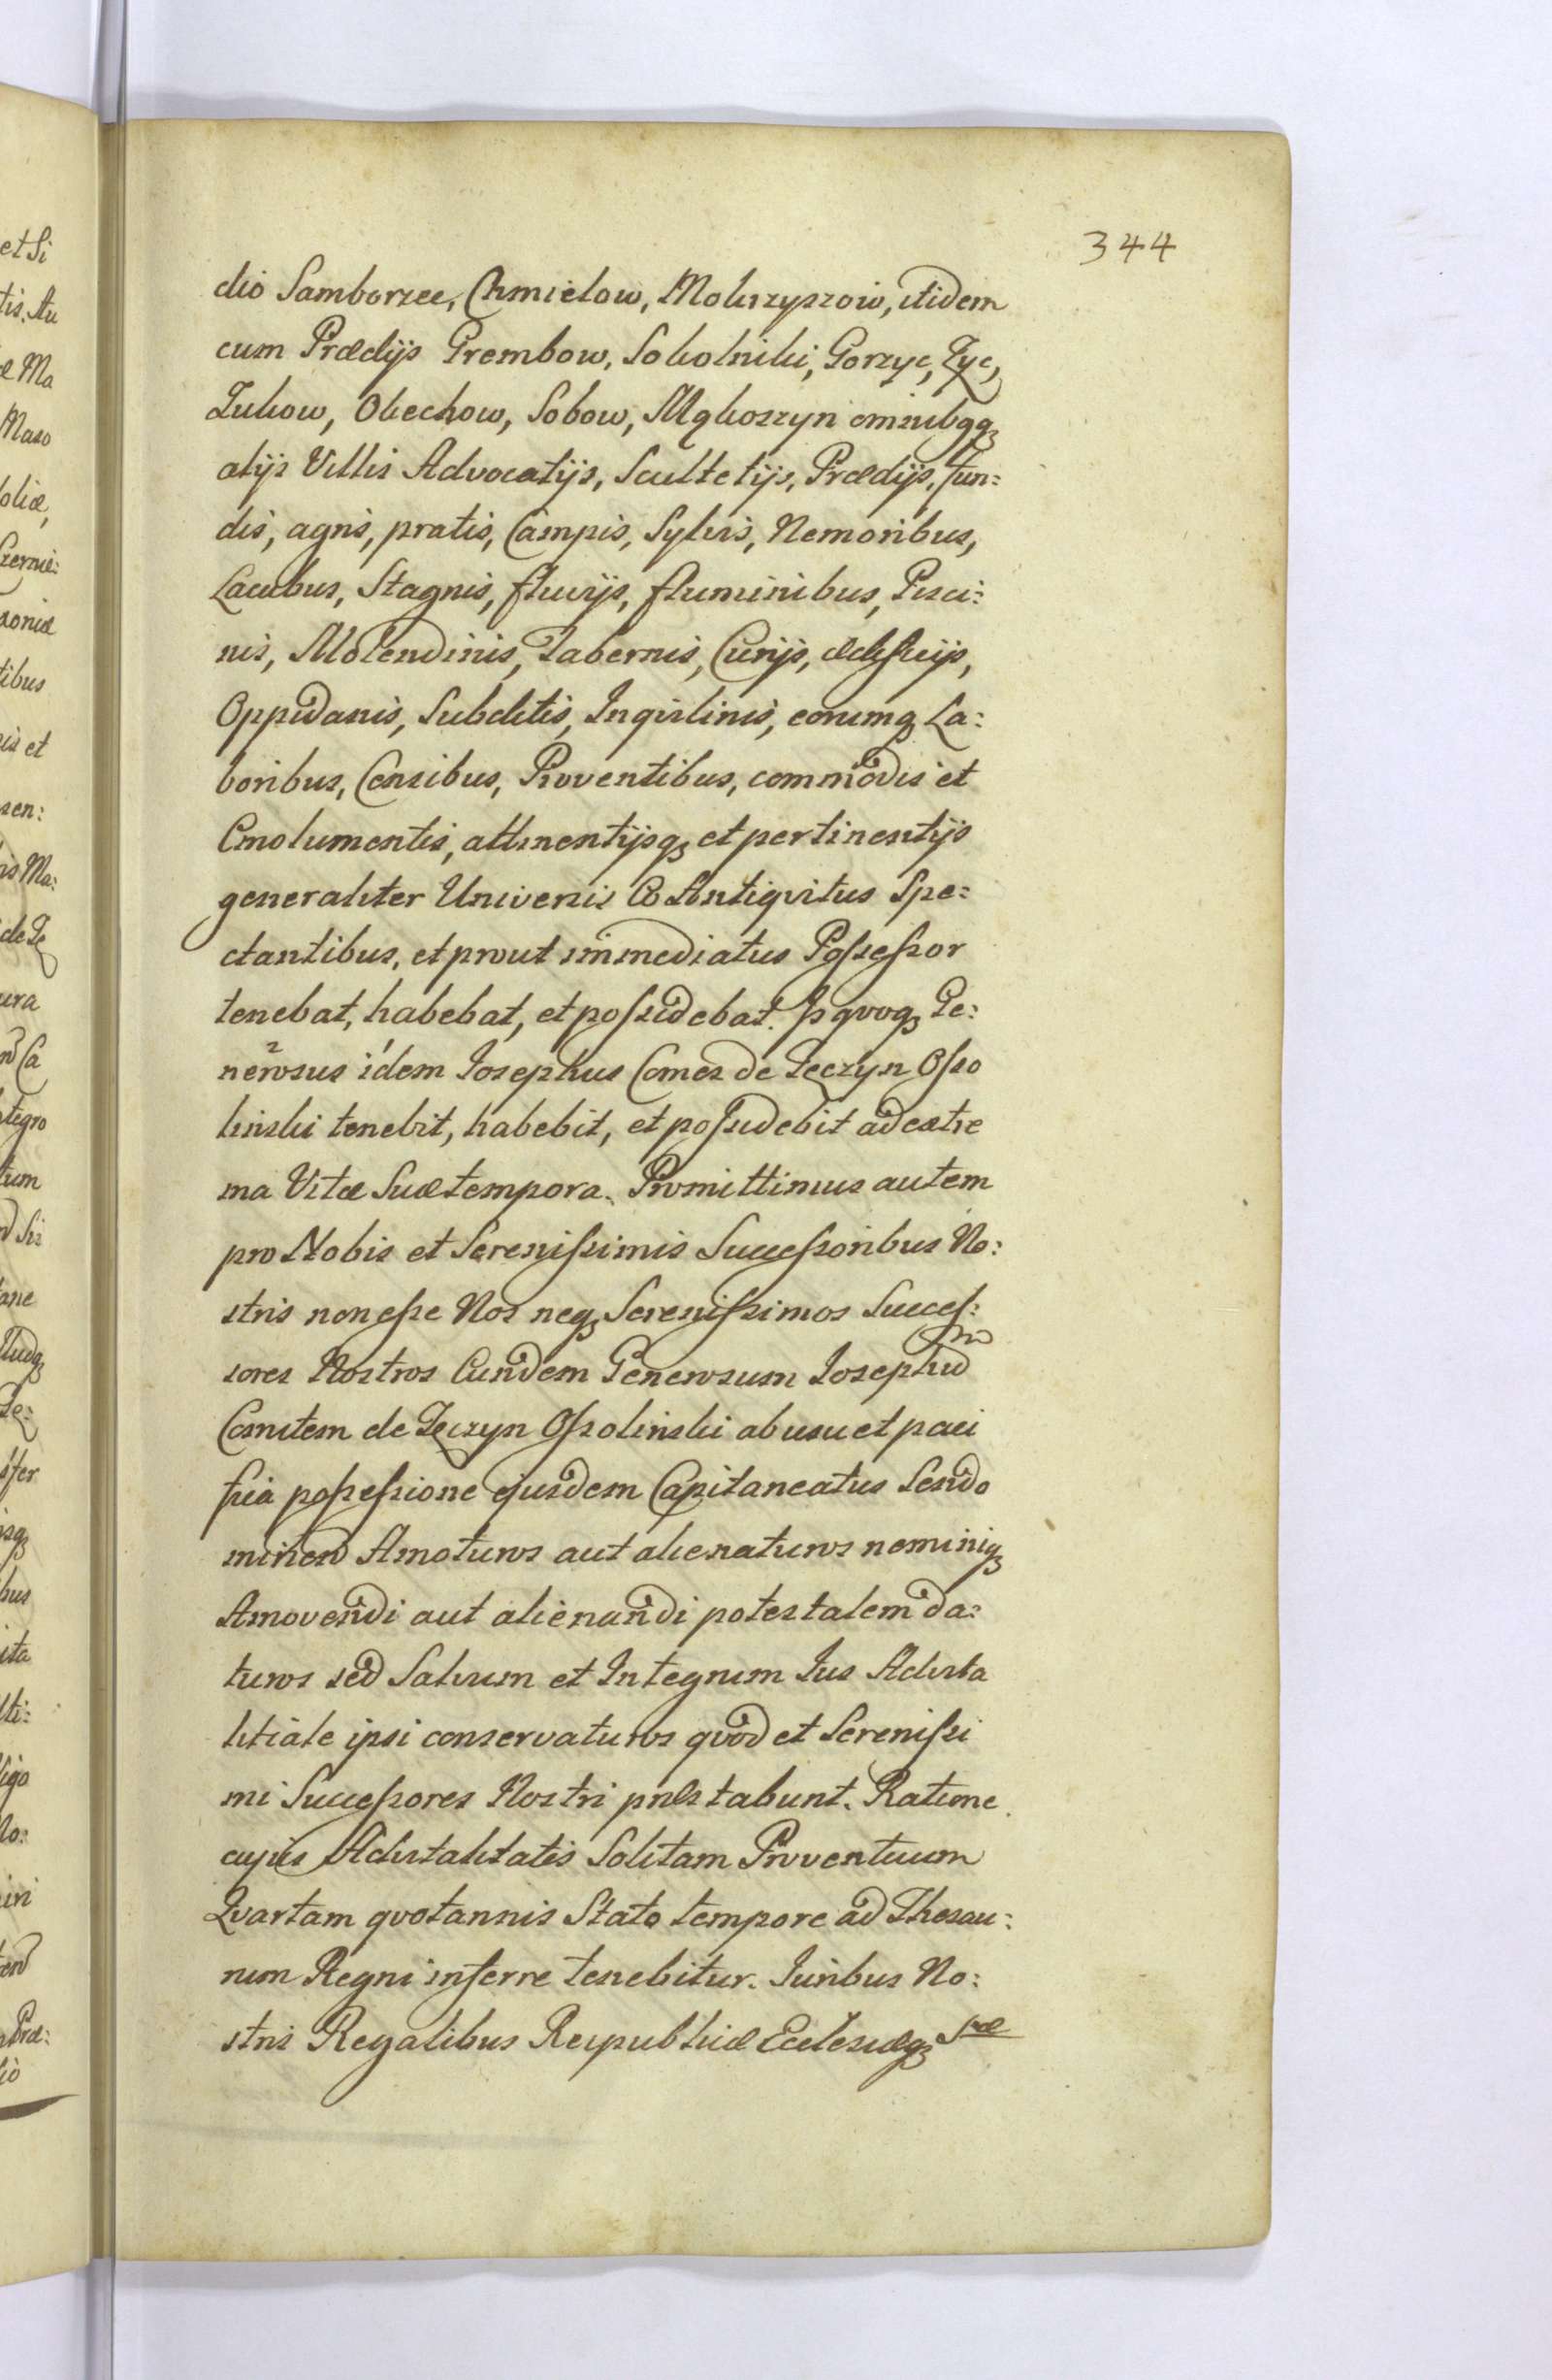 344
dio Samborzec, Chmielow, Mokrzyszow, itidem
cum Prædijs Grembow, Sokolniki, Gorzyc, Zyc,
Zukow, Okechow, Sobow, Mqkoszyn omnibqq
alijs Villis Advocatijs, Scultetijs, Prædijs, fun:
dis, agris, pratis, Campis, Sylvis, Nemoribus,
Lacubus, Stagnis, fluvijs, fluminibus, Pisci:
nis, Molendinis, Tabernis, Curijs, ædificijs,
Oppidanis, Subditis, Inqvilinis, eorumq La:
boribus, Censibus, Proventibus, commodis et
Emolumentis, attinentijsq et pertinentijs
generaliter Universis Eo Antiqvitus Spe:
ctantibus, et prout immediatus Possessor
tenebat, habebat, et possidebat. Is qvoq Ge:
nerosus idem Iosephus Comes de Teczyn Osso
linski tenebit, habebit, et possidebit ad extre
ma Vitæ Suæ tempora. Promittimus autem
pro Nobis et Serenissimis Successoribus No:
stris non esse Nos neq Serenissimos Succes:
sores Nostros Eundem Generosum Iosephum
Comitem de Teczyn Ossolinski ab usu et paci
fica possessione ejusdem Capitaneatus Sendo
mirien Amoturos aut alienaturos neminiq
Amovendi aut alienandi potestatem da:
turos sed Salvum et Integrum Ius Advita
litiale ipsi conservaturos qvod et Serenissi
mi Successores Nostri præstabunt. Ratione
cujus Advitalitatis Solitam Proventuum
Qvartam qvotannis Stato tempore ad Thesau:
rum Regni inferre tenebitur. Iuribus No:
stris Regalibus Reipublicæ Ecclesiæq Sæ